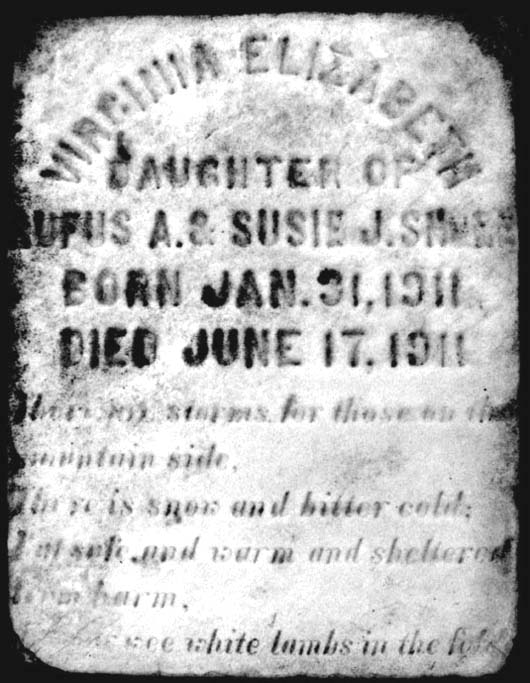 VIRGINIA ELIZABETH
DAUGHTER OF
RUFUS A. & SUSIE J.
BORN JAN. 31, 1911.
DIED JUNE 17, 1911
There are storms for those on the
mountain side,
There is snow and bitter cold;
But safe and warm and sheltered
from harm,
wee white lambs in the fold